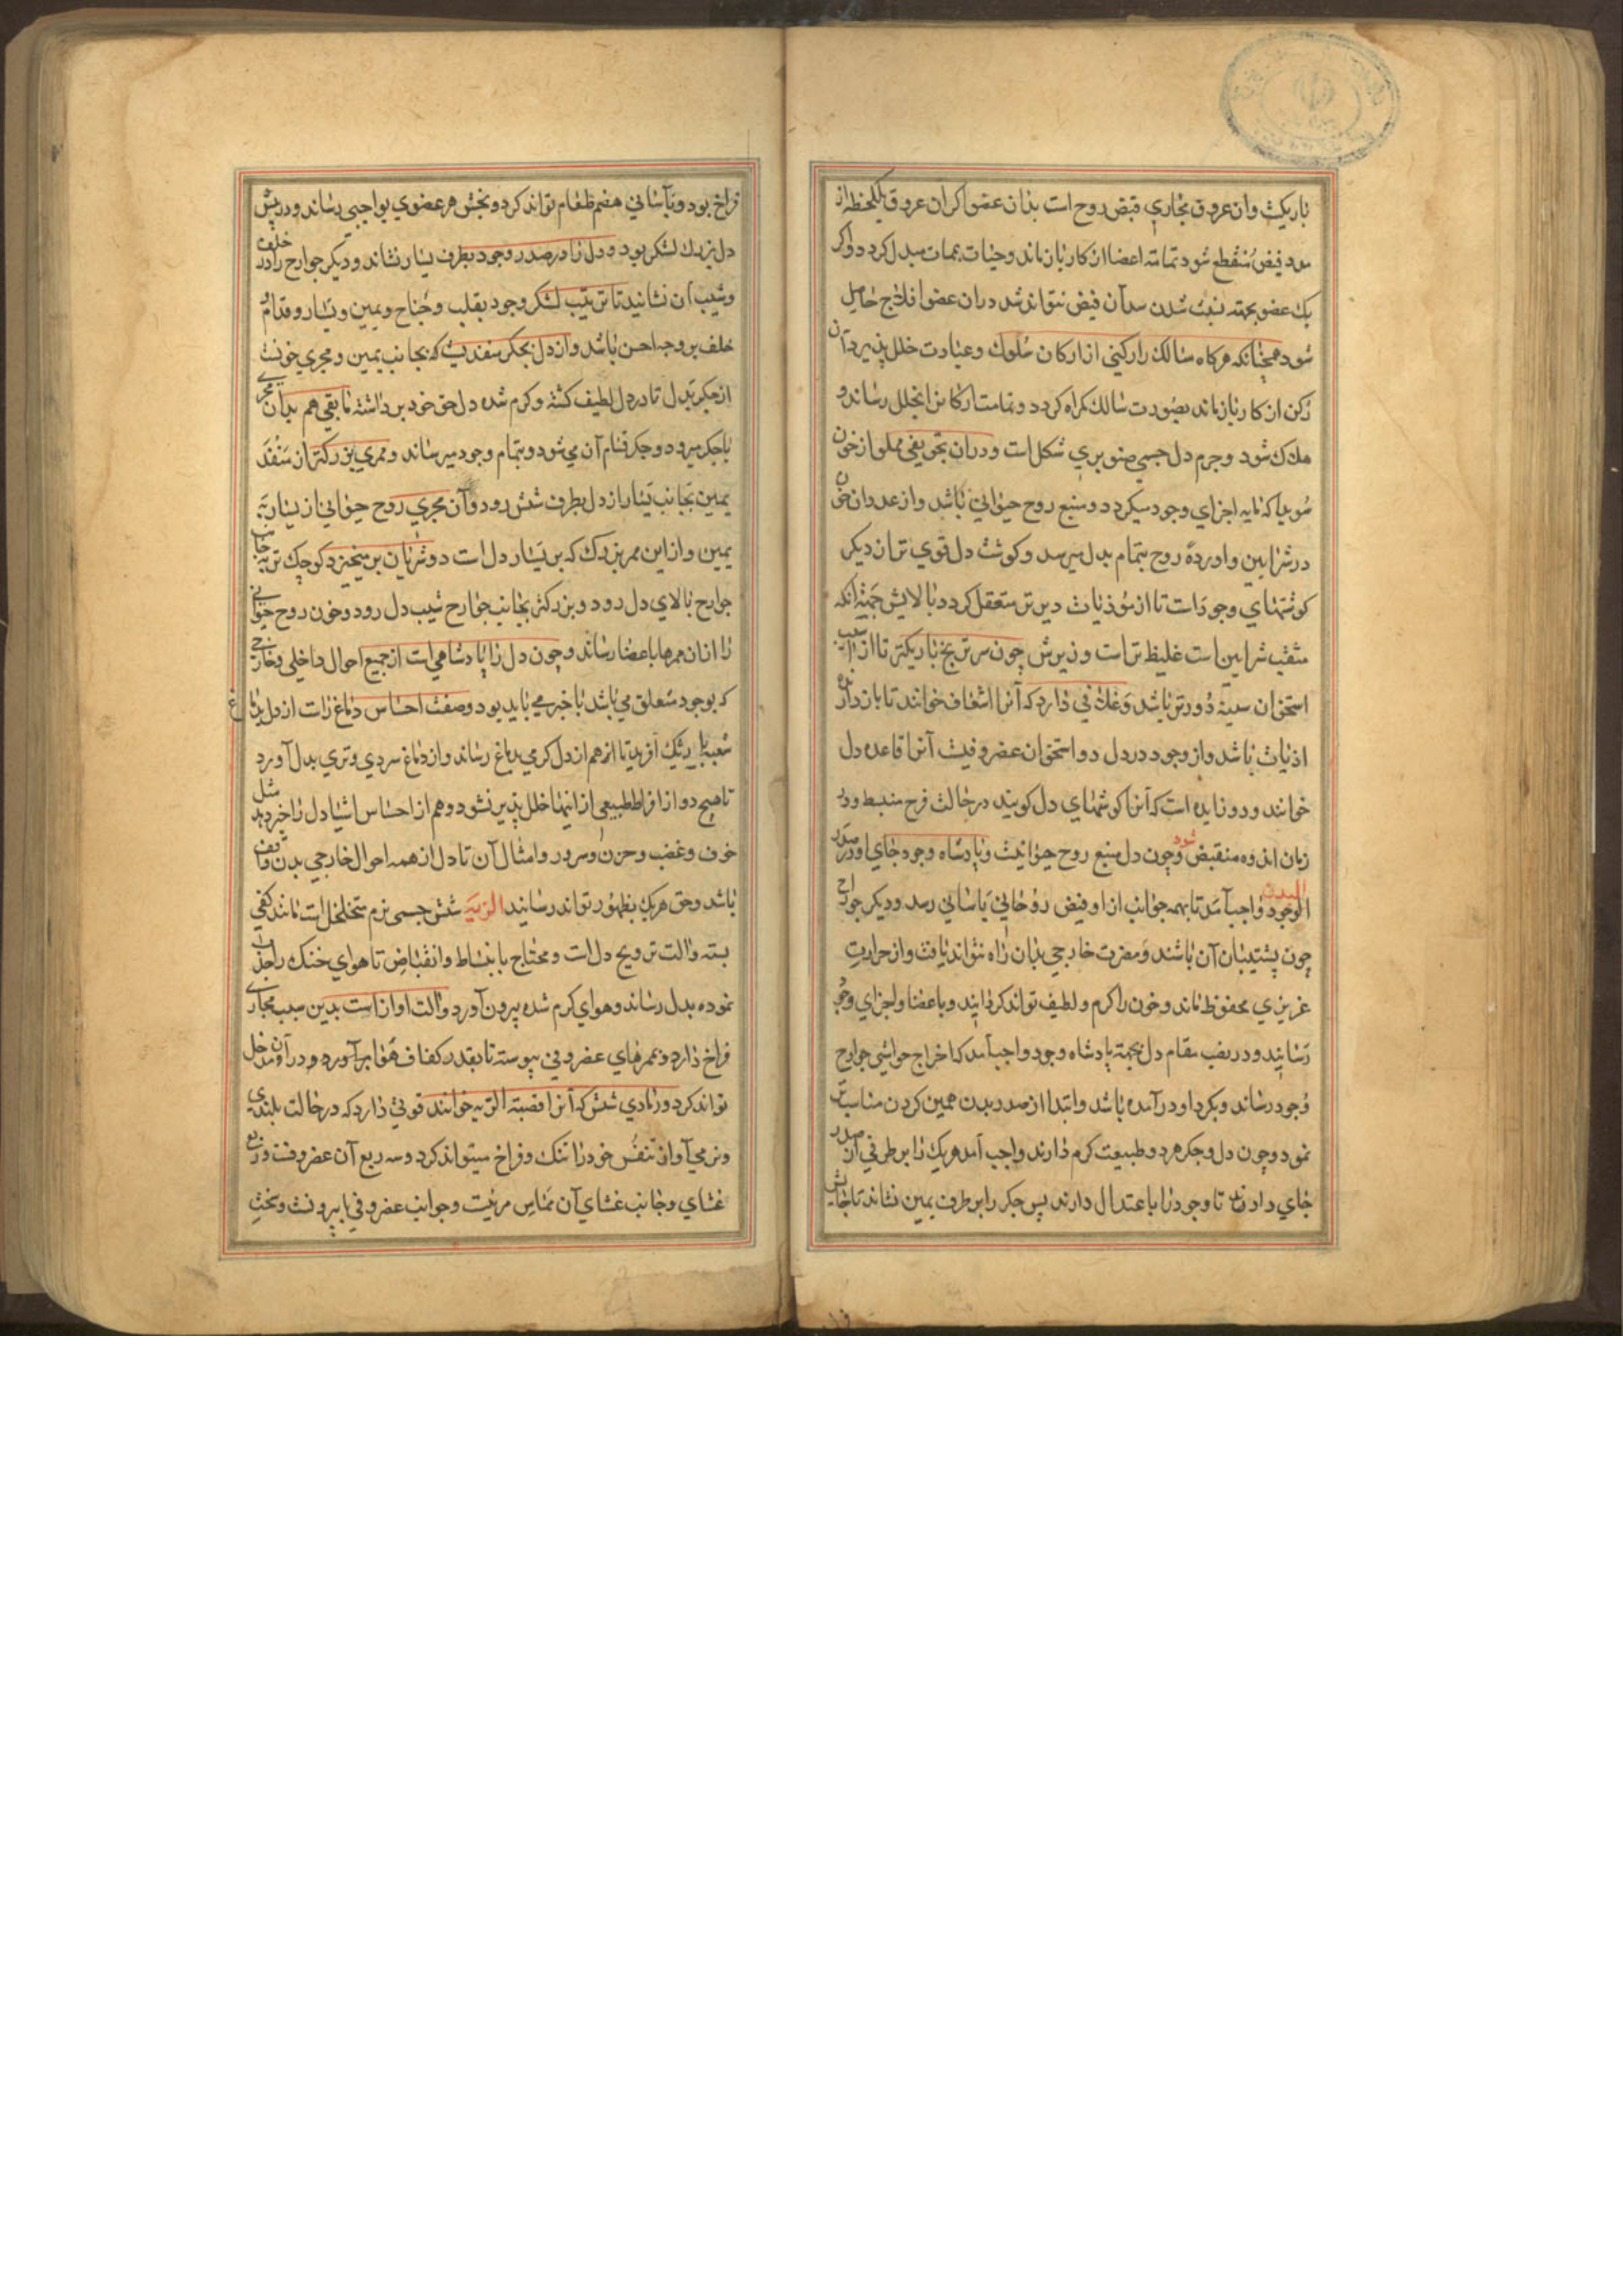 باریکیست وان عروق مجاری قبض روح است بدان عضو اکر ان عروق یکلحظه از
مدد فیض منقطع شود تمامت اعضا از کار باز ماند و حیات بممات مبدل کردد و اکر
یک عضو بجهته شدن سد آن فیض نتواند شد دران عضو افلاج حاصل
شود همچنانکه هرکاه سالک را رکنی از ارکان سلوک و عبادت خلل پذیرد آن
رکن از کار باز ماند بصورت سالک کمراه کردد و تمامت ارکانرا بخلل رساند و
هلاک شود و جرم دل جسمی صنوبری شکل است و دران تجویفی مملو از خون
سویدا که مایه اجزای وجود میکردد و منبع روح حیوانی باشد و از عددان خون
در شرایین و اورده روح بتمام بدل میرسد و کوشت دل قوی تر از دیکر
کوشتهای وجود است تا از موذیات دیرتر منفعل کردد بالایش جهته انکه
منقب شرایین است غلیظ تر است و زیرش چون سر ترنج باریکتر تا از
استخوان سینه دورتر باشد و غلافی دارد که آنرا شغاف خوانند تا باز دارنده
اذیات باشد و از وجود در دل دو استخوان غضروفیست آنرا قاعده دل
خوانند و دو زایده است که آنرا کوشهای دل کویند در حالت فرح منبسط و در
زمان اندوه منقبض شود و چون دل منبع روح حیوانیست و پادشاه وجود جای او در صدر
البدن الوجود واجب آمد تا بهمه جوانب از او فیض روحانی باسانی رسد و دیکر جوارح
چون پشتیبان آن باشند و مضرت خارجی بدان راه نتواند یافت و از حرارت
غریزی محفوظ ماند و خون را کرم و لطیف تواند کردانید و باعضا و اجزای وجود
رسانید و در نصب مقام دل بجهة پادشاه وجود واجب آمد که اخراج حواشی جوارح
وجود رساند و بکرد او درآمده باشد و ابتدا از صدر بدن همین کردن مناسبتر
نمود و چون دل و جکر هر دو طبیعت کرم دارند واجب آمد هریک را بر طرفی آن صدر
جای دادن تا وجود را با عتدال دارند پس جکر را بر طرف یمین نشاند تا جایش
فراخ بود و باسانی هضم طعام تواند کرد و بخش هر عضوی بواجبی رساند و در پیش
دل بزرک لشکر بود و دل را در صدر وجود بطرف یسار نشاند و دیکر جوارح را در خلف
و شیب ان نشانید تا ترتیب لشکر وجود بقلب و جناح و یمین و یسار و قدام
خلف بر وجه احسن باشد و از دل بجکر منفذیست که بجانب یمین و مجری خونست
از جکر بدل تا در دل لطیف کشته و کرم شده دل حق خود برداشته باقی هم بدان مجری
با جکر میرود و جکر قسام آن می شود و بتمام وجود میرساند و ممری بزرکتر از منفذ
یمین بجانب یسار از دل بطرف شش رود و آن مجری روح حیوانی از یسار به
یمین و از این ممر بزرک که بر یسار دل است دو شریان برمیخیزد کوچک تر بجانب
جوارح بالای دل رود و بزرکتر بجانب جوارح شیب دل رود و خون روح حیوانی
را ازان ممرها باعضا رساند و چون دل را پادشاهی است از جمیع احوال داخلی و خارجی
که بوجود متعلق می باشد باخبر می باید بود و صفت احساس دماغ راست از دل بدماغ
شعبه باریک آفرید تا از هم از دل کرمی بدماغ رساند و از دماغ سردی و تری بدل آورد
تا هیچ دو از افراط طبیعی از اینها خلل پذیر نشود و هم از احساس اشیا دل را خبر دهد مثل
خوف و غضب و حزن و سرور و امثال آن تا دل از همه احوال خارجی بدن واقف
باشد و حق هریک بظهور تواند رسانید الریه شش جسمی نرم متخلخل است مانند کفی
بسته و الت ترویح دل است و محتاج بانبساط و انقباض تا هوای خنک را جذب
نموده بدل رساند و هوای کرم شده بیرون آورد و الت اواز است بدین سبب مجاری
فراخ دارد و بممرهای غضروفی پیوسته تا بقدر کفاف هوا برآورد و در آن مدخل
تواند کرد و زنادی شش که آنرا قصبته الریه خوانند قوتی دارد که در حالت بلندی
و نرمی آواز تنفس خود را تنک و فراخ میتواند کرد و سه ربع آن غضروفست و ربع
غشای و جانب غشای آن مماس مریست و جوانب غضروفی با بیرونست و سختی